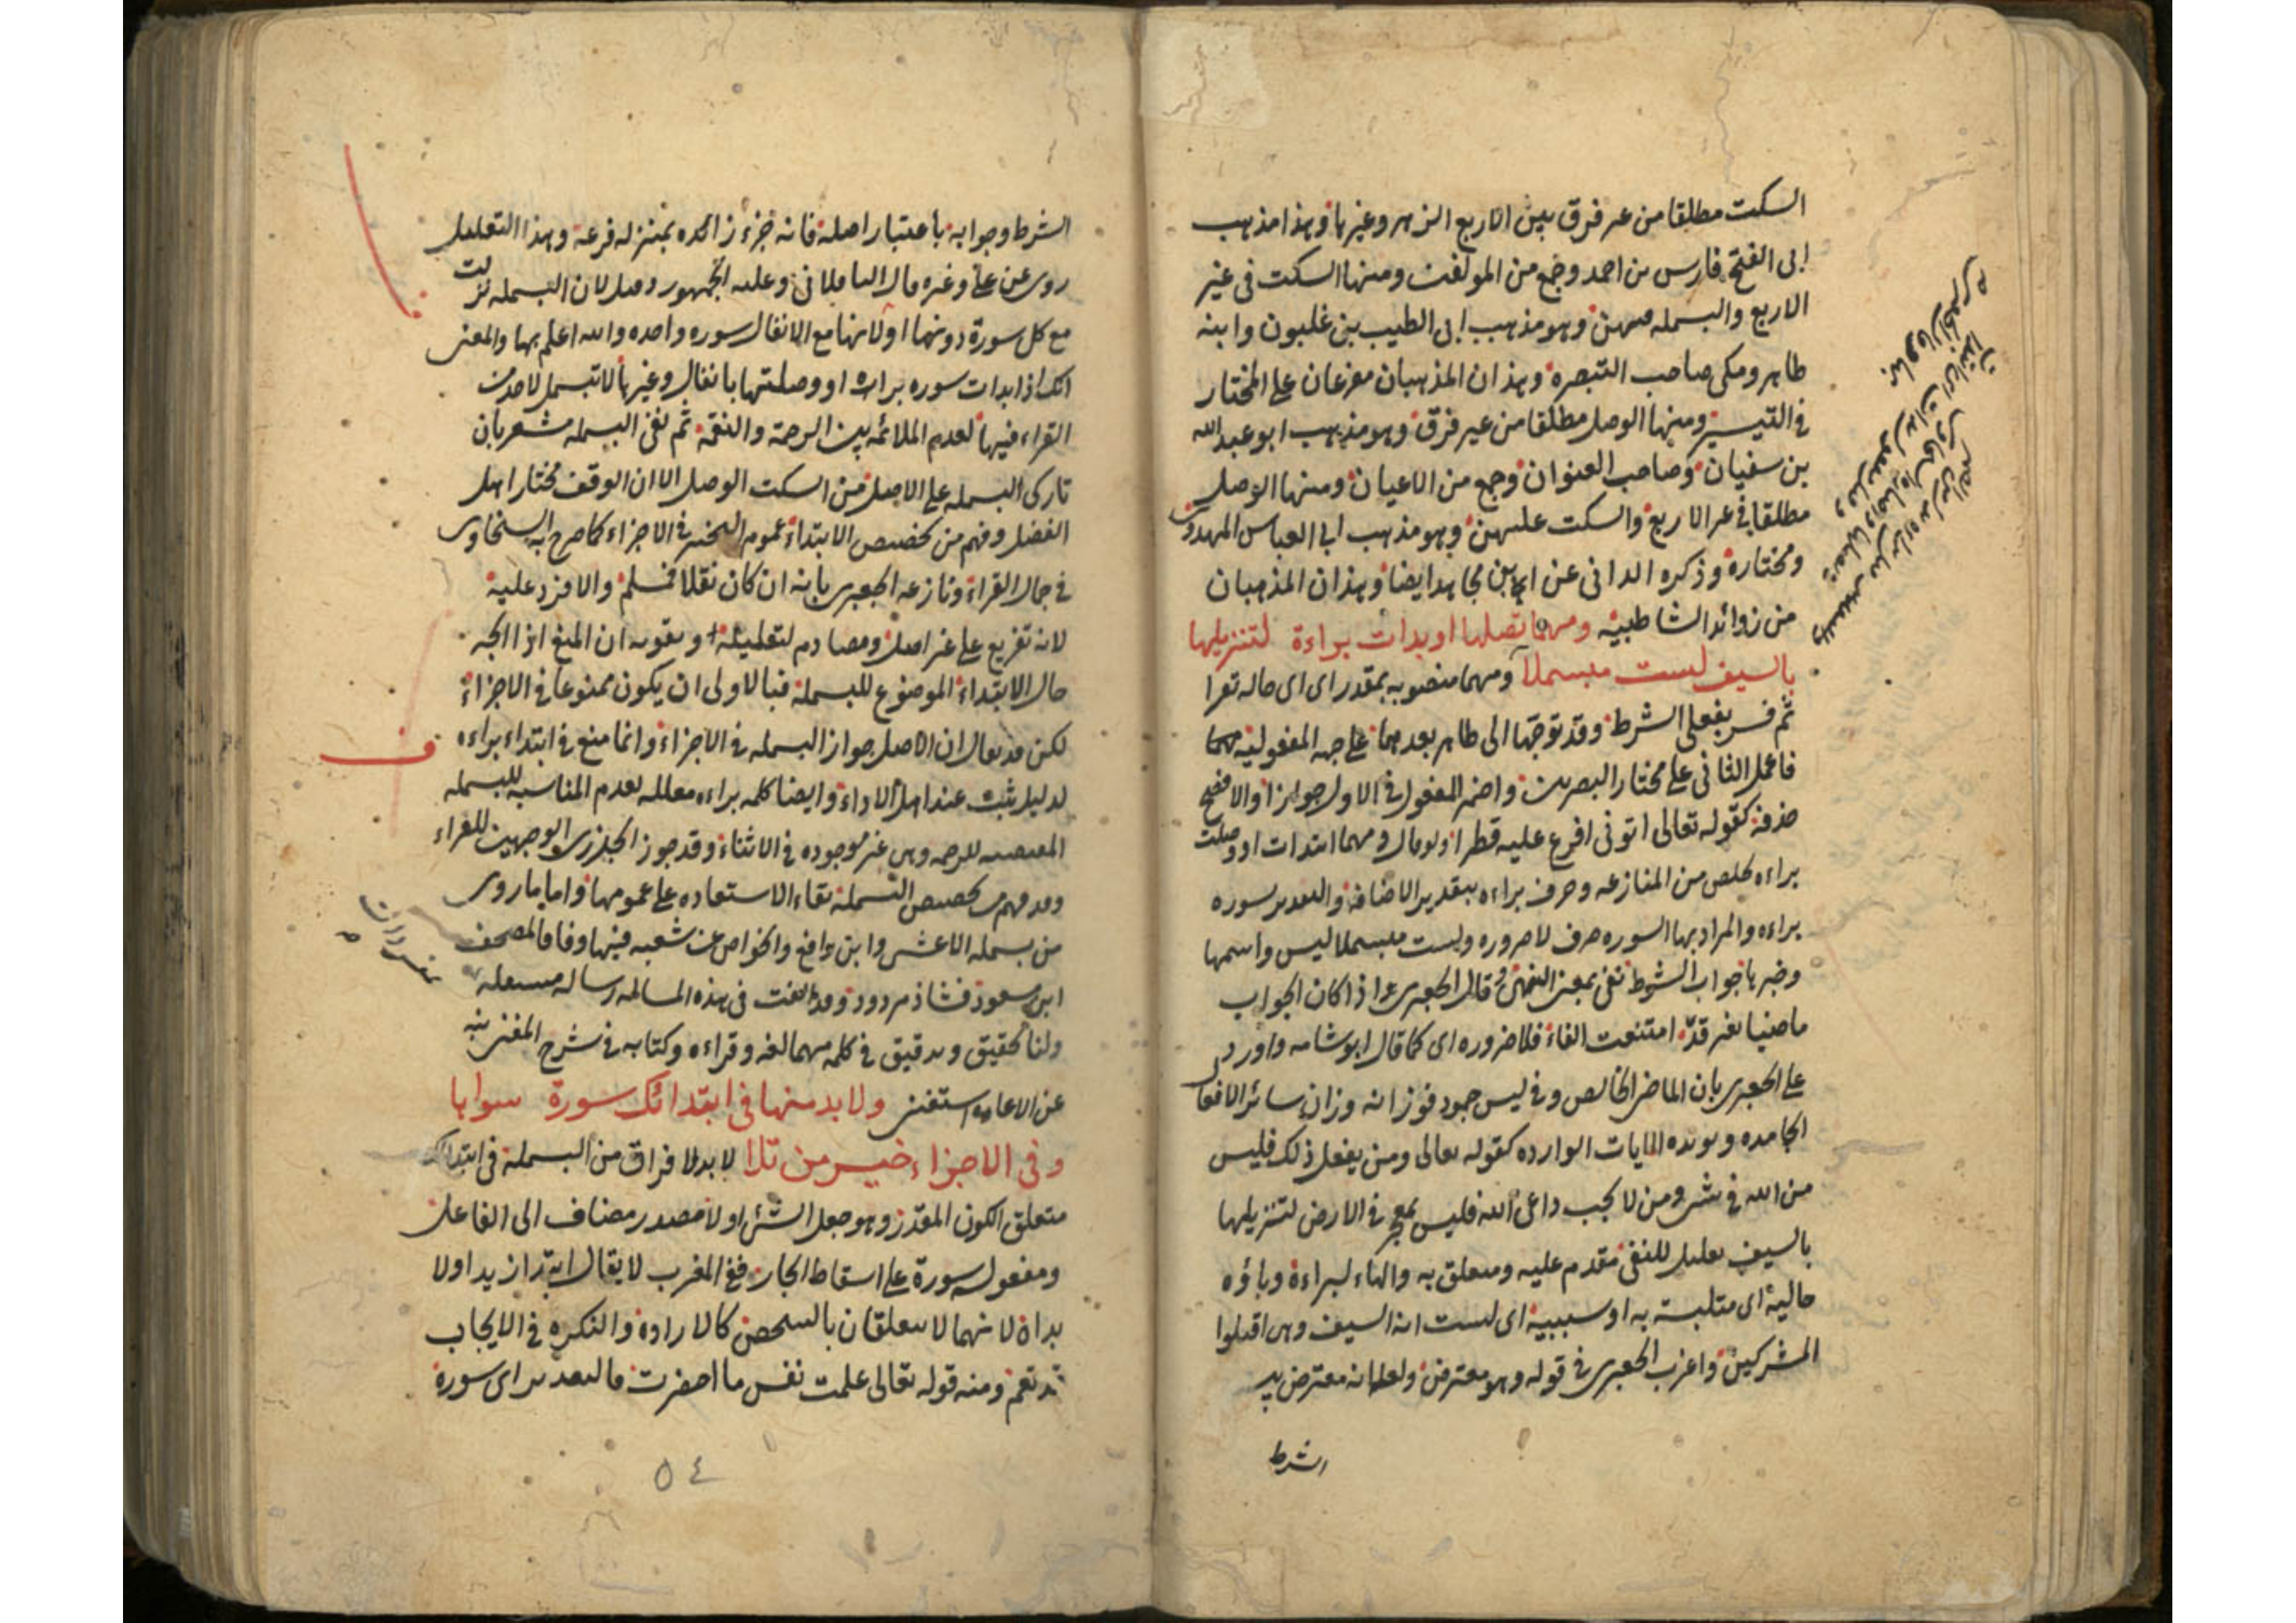 السكت مطلقا من غير فرق بين الاربع الزهر وغيرها وهذا مذهب
ابى الفتح فارس بن احمد وجمع من المؤلفين ومنها السكت فى غير
الاربع والبسملة فيهن وهو مذهب ابى الطيب بن غلبون وابنه
طاهر ومكى صاحب التبصرة وهذان المذهبان مفرعان على المختار
فى التيسير ومنها الوصل مطلقا من غير فرق وهو مذهب ابو عبد الله
بن سفيان وصاحب العنوان وجمع من الاعيان ومنها الوصل
مطلقا فى غير الاربع والسكت عليهن وهو مذهب ابى العباس المهدوى
ومختاره وذكره الدانى عن ابن مجاهد ايضا وهذان المذهبان
من زوائد الشاطبية ومهما تصلها او بدات براءة لتنزيلها
بالسيف لست مبسملا ومهما منصوبه بمقدر اى اى حاله تقرا
ثم فسر بفعلى الشرط وقد توجها الى ظاهر بعد مهما على جهة المفعولية
فاعمل الثانى على مختار البصريين واضمر المفعول فى الاول جوازا والافصح
حذفه كقوله تعالى اتونى افرغ عليه قطرا ولو قال ومهما ابتدات او وصلت
براءه لخلص من المنازعه وصرف براءه بتقدير الاضافة والتقدير سورة
براءه والمراد بها السوره صرف لا ضروره ولست مبسملا ليس واسمها
وخبرها جواب الشرط نفى بمعنى النهى وقال الجعبرى اذا كان الجواب
ماضيا بغير قد امتنعت الفاء فلا ضروره اى كما قال ابو شامه واورد
على الجعبرى بان الماضى الخالص وفى ليس جمود فوزانه وزان سائر الافعا
الجامده ويؤيده الايات الوارده كقوله تعالى ومن يفعل ذلك فليس
من الله فى شى ومن لا يجب داعى الله فليس بمعجز فى الارض لتنزيلها
بالسيف تعليل للنفى مقدم عليه ومتعلق به والهاء لبراءة وباؤه
حالية اى متلبسة به او سببية اى لست اية السيف وهى اقتلوا
المشركين واعرب الجعبرى فى قوله وهو معترض ولعله انه معترض بين
الشرط
الشرط وجوابه باعتبار اصله فانه جزء زائده بمنزله فرعه وهذا التعليل
روى عن على وغيره قال الباقلانى وعليه الجمهور وقيل لان البسملة نزلت
مع كل سورة دونها او لانها مع الانفال سوره واحده والله اعلم بها والمعنى
انك اذا بدات سوره براءة او وصلتها بانفال وغيرها لا تبسمل لاحد من
القراء فيها لعدم الملائمه بين الرحمة والنقمة ثم نفى البسملة مشعر بان
تاركى البسمله على الاصل من السكت الوصل الا ان الوقف مختار اهل
الفضل وفهم من تخصيص الابتداء عموم التخيير فى الاجزاء كما صرح به السخاوى
فى جمال القراء ونازعه الجعبرى بانه ان كان نقلا فمسلم والا فرد عليه
لانه تفريع على غير اصل ومصادم لتعليله ويقويه ان المنع اذا اتجه
حال الابتداء الموضوع للبسملة فبالاولى ان يكون ممنوعا فى الاجزاء
لكن قد يقال ان الاصل جواز البسملة فى الاجزاء وانما منع فى ابتداء براءه
لدليل يثبت عند اهل الاداء وايضا كلمه براءه معلله بعدم المناسبه للبسملة
المقتضيه للرحمه وهى غير موجوده فى الاثناء وقد جوز الجزرى الوجهين للقراء
وقد فهم من تخصيص البسملة بقاء الاستعاذه على عمومها واما ما روى
من بسمله الاعشى وابن واقع والخواص عن شعبه فيها وفاقا لمصحف
ابن مسعود فشاذ مردود وقد الفت فى هذه المسالة رسالة مستقلة
ولنا تحقيق وتدقيق فى كلمه مهما لغه وقراءه وكتابه فى شرح المغنى نبه
عن الاعاده استغنى ولا بد منها فى ابتدائك سورة سواها
وفى الاجزاء خير من تلا لا بد لا فراق من البسملة فى ابتدائك
متعلق الكون المقدر وهو جعل الشئ اولا مصدر مضاف الى الفاعل
ومفعوله سورة على اسقاط الجار ففى المغرب لا يقال ابتدا زيد او لا
بداة لانهما لا يتعلقان بالشخص كالارادة والنكره فى الايجاب
قد تعم ومنه قوله تعالى علمت نفس ما احضرت فالتقدير اى سورة
٥٤